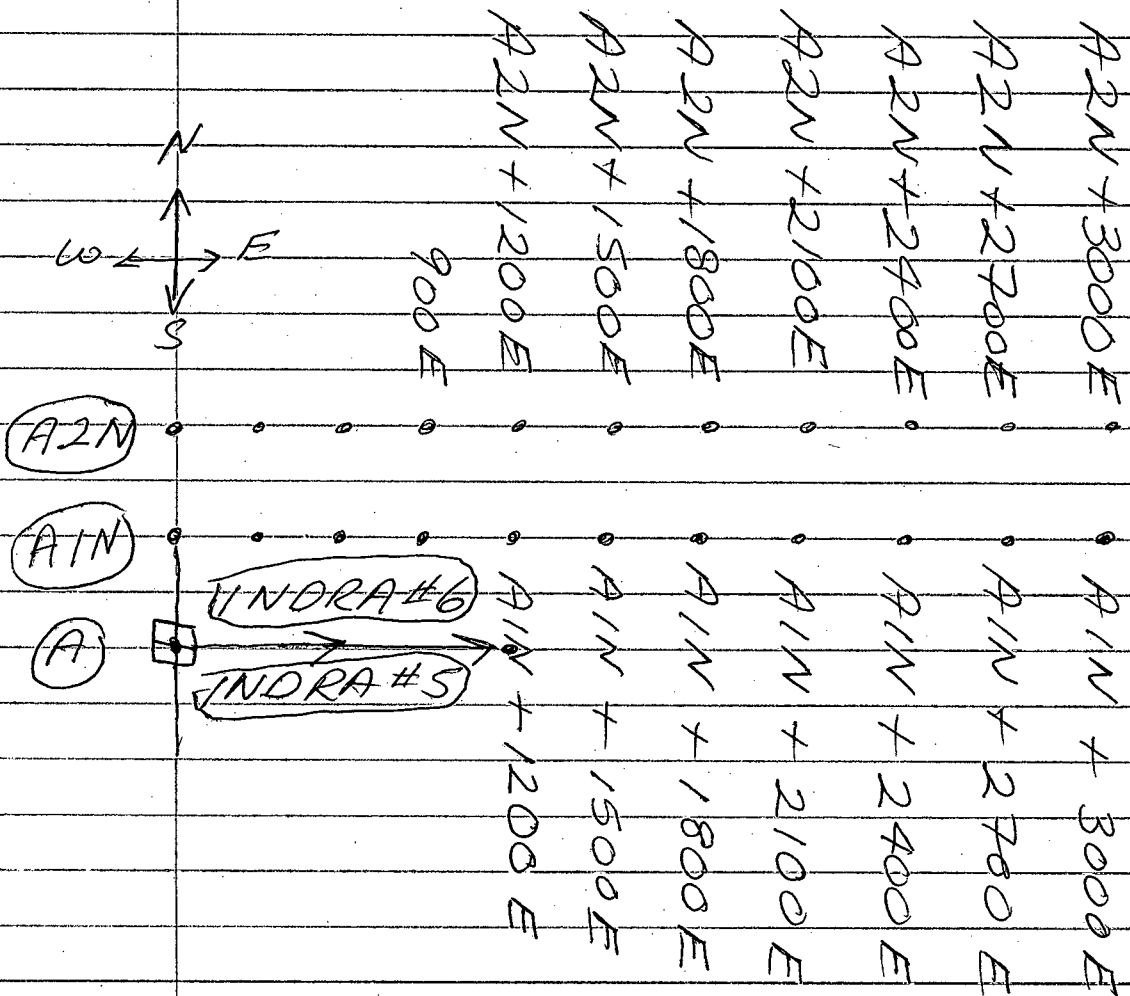 A2N+1200E
A2N+1500E
A2N+1800E
A2N+2100E
A2N+2400E
A2N+2700E
A2N+3000E
900E
N
W
E
S
A2N
A1N
A
INDRA#6
INDRA#5
A1N+1200E
A1N+1500E
A1N+1800E
A1N+2100E
A1N+2400E
A1N+2700E
A1N+3000E